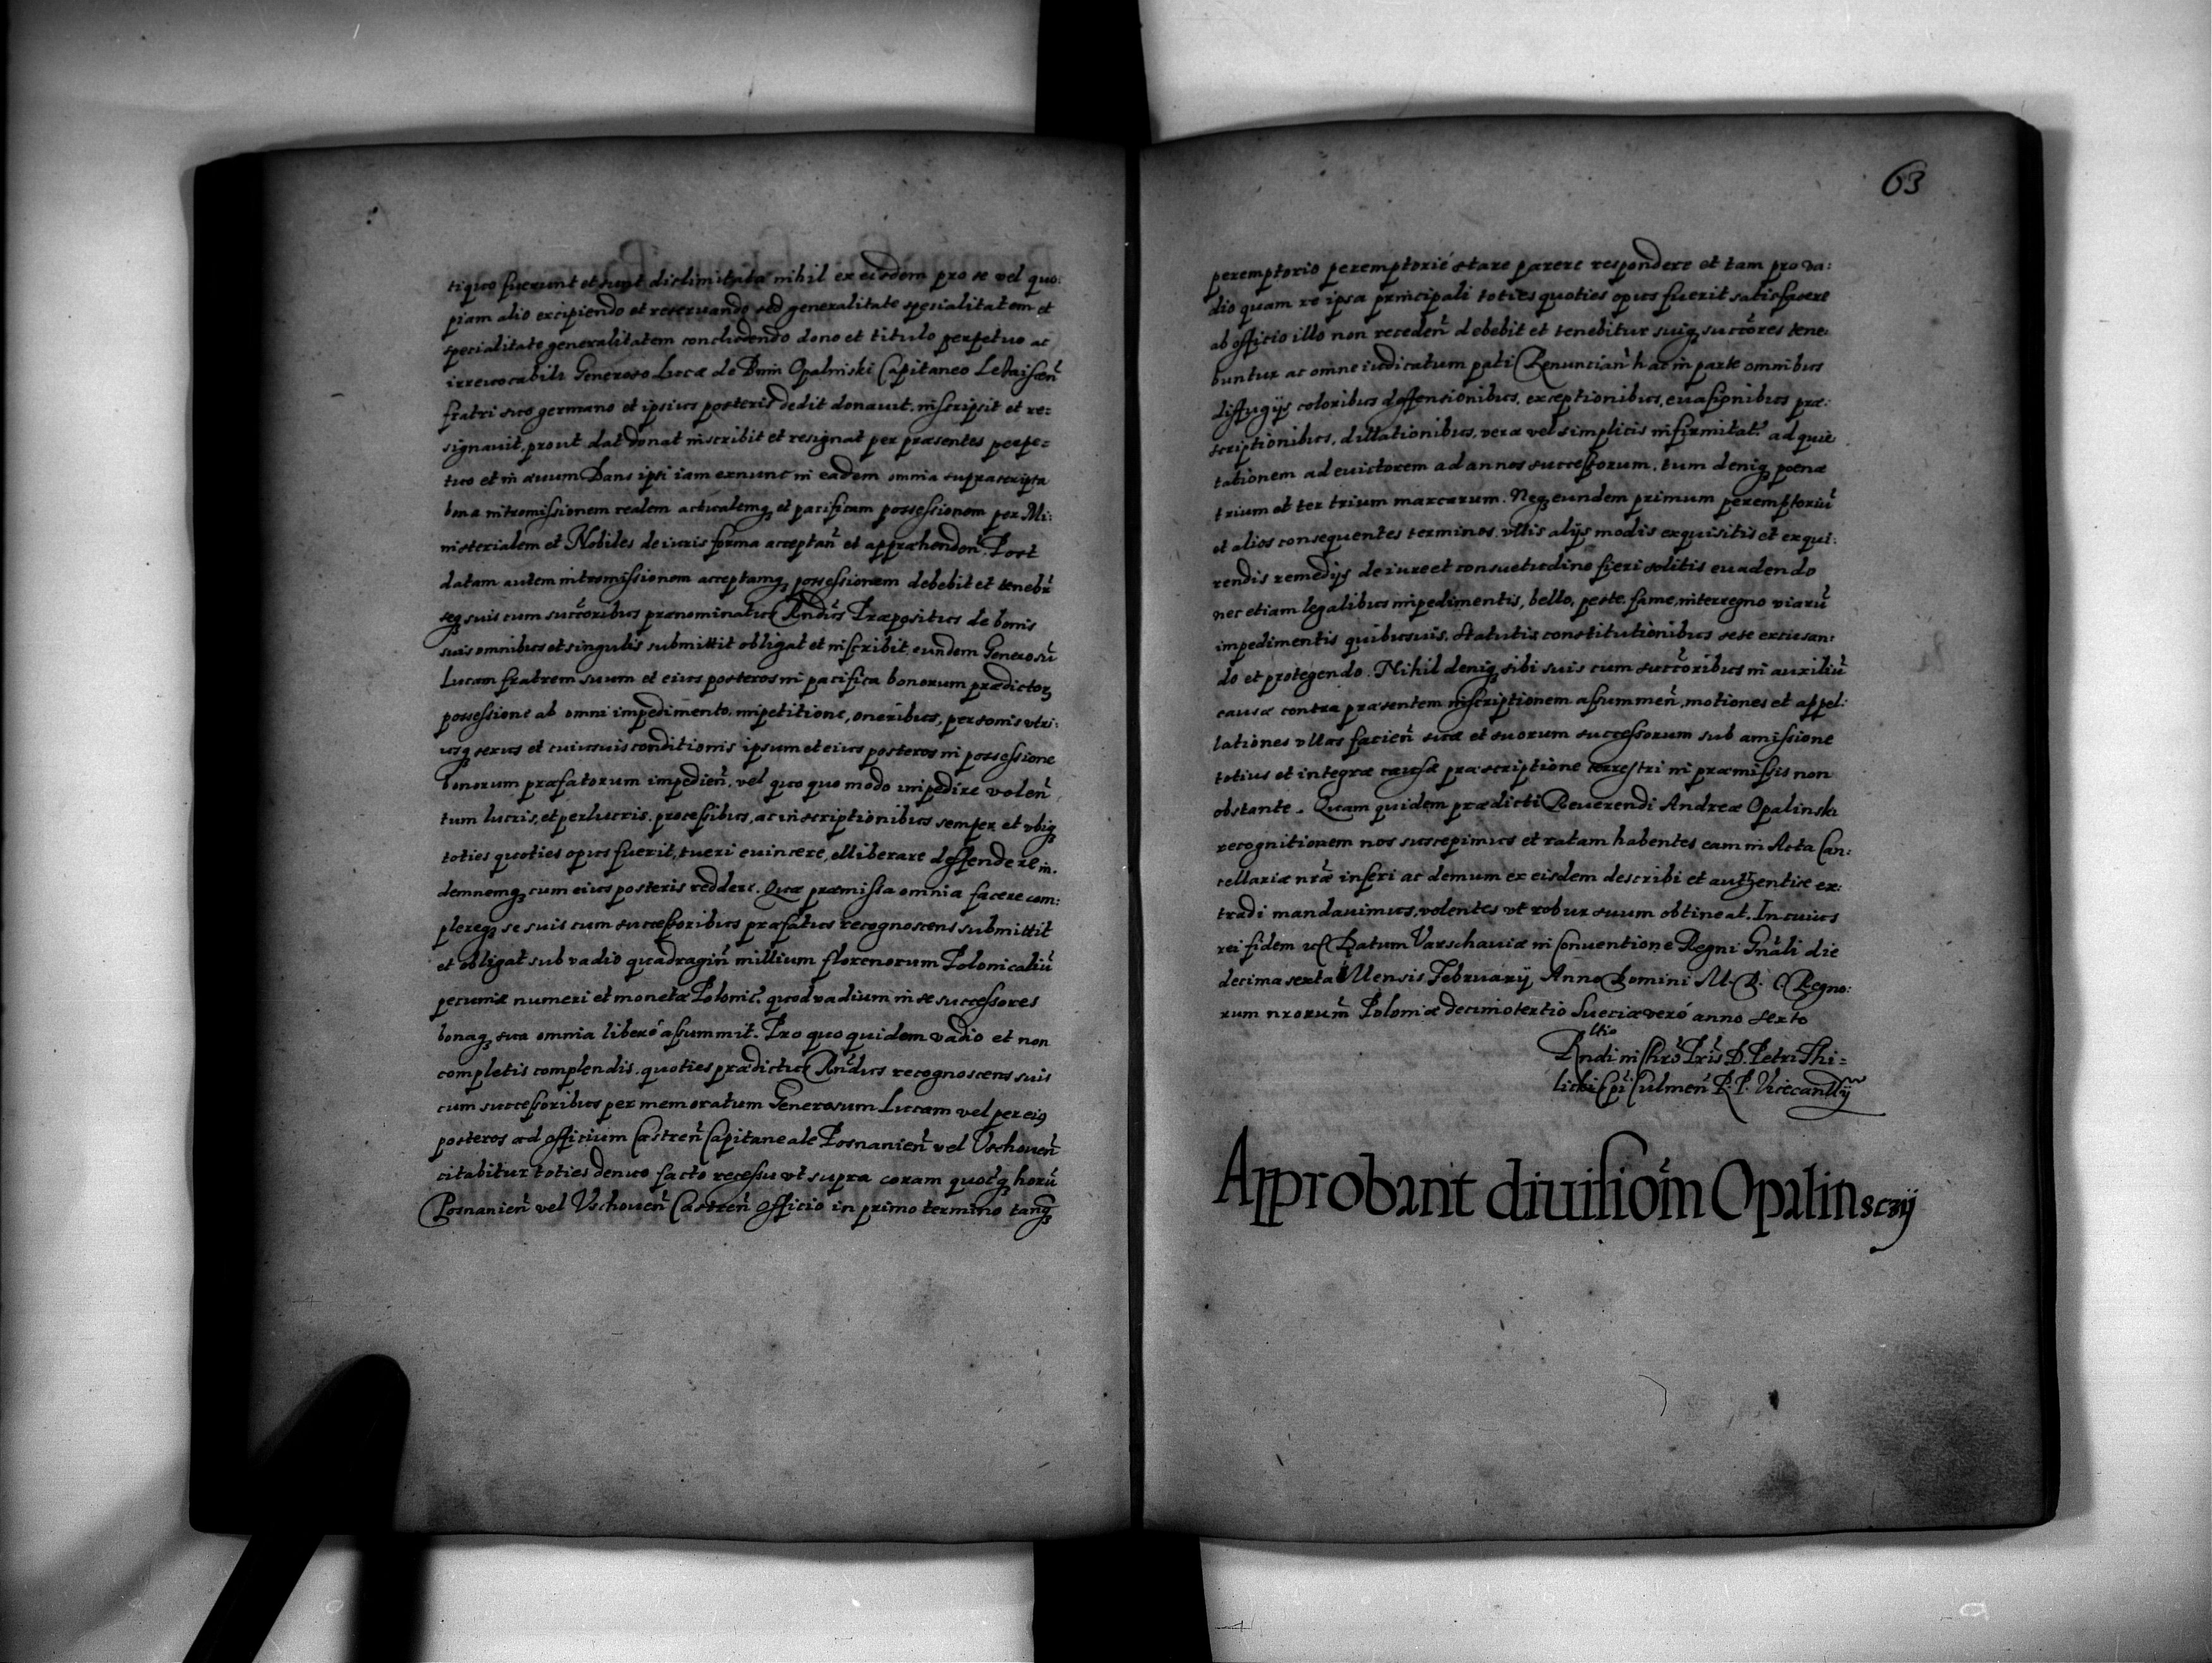 tiquo fuerunt et sunt dislimitata nihil ex eisdem pro se vel quo:
piam alio excipiendo et reseruando sed generalitate specialitatem et
specialitate generalitatem concludendo dono et titulo perpetuo ac
irreuocabili Generoso Lucæ de Bnin Opalinski Capitaneo
fratri suo germano et ipsius posteris dedit donauit, inscripsit et re=
signauit, prout dat donat inscribit et resignat per præsentes perpe=
tuo et in æuum Dans ipsi iam exnunc in eadem omnia suprascripta
bona intromissionem realem actualemq3 et pacificam possessionem per Mi:
nisterialem et Nobiles de iuris forma acceptan̄ et appræhenden̄. Post
datam autem intromissionem acceptamq3 possessionem debebit et tenebr̄
seq3 suis cum succ̄oribus prænominatus Rndūs Præpositus de bonis
suis omnibus et singulis submittit obligat et inscribit, eundem Generosū
Lucam fratrem suum et eius posteros in pacifica bonorum prædictor3
possessione ab omni impedimento, impetitione, oneribus, personis vtri:
usq3 sexus et cuiusuis conditionis ipsum et eius posteros in possessione
bonorum præfatorum impedien̄, vel quo quo modo impedire volen̄
tum lucris, et perlucris, processibus, ac inscriptionibus semper et vbiq3
toties quoties opus fuerit, tueri euincere, elliberare deffendere in:
demnemq3 cum eius posteris reddere. Quæ præmissa omnia facere com:
plereq3 se suis cum successoribus præfatus recognoscens submittit
et obligat sub vadio quadragin̄ millium florenorum Polonicaliū
pecuniæ numeri et monetæ Polonic̄. quod vadium in se successores
bonaq3 sua omnia liberé assummit. Pro quo quidem vadio et non
completis complendis, quoties prædictus Rndūs recognoscens suis
cum successoribus per memoratum Generosum Lucam vel per ei9
posteros ad officium Castren̄ Capitaneale Posnanien̄ vel Vschouen̄
citabitur toties denuo facto recessu vt supra coram quotq3 horū
Posnanien̄ vel Vschouen̄ Castren̄ Officio in primo termino tanq3
63
peremptorio peremptorié stare parere respondere et tam pro va:
dio quam re ipsa principali toties quoties opus fuerit satisfacere
ab officio illo non receden̄ debebit et tenebitur suiq3 succ̄ores tene:
buntur ac omne iudicatum pati Renuncian̄ hac in parte omnibus
diffugijs coloribus deffensionibus, exceptionibus, euasionibus præ:
scriptionibus, dillationibus, veræ vel simplicis infirmitat. ad quie
tationem ad euictorem ad annos successorum, tum deniq3 poenæ
trium et ter trium marcarum. Neq3 eundem primum peremptoriū
et alios consequentes terminos vllis alijs modis exquisitis et exqui:
rendis remedijs de iure et consuetudine fieri solitis euadendo
nec etiam legalibus impedimentis, bello, peste, fame, interregno viarū
impedimentis quibusuis, statutis constitutionibus sese excusan:
do et protegendo. Nihil deniq3 sibi suis cum succ̄oribus in auxiliū
causæ contra præsentem inscriptionem assummen̄, motiones et appel:
lationes vllas facien̄ suæ et suorum successorum sub amissione
totius et integræ causæ præscriptione terrestri in præmissis non
obstante. Quam quidem prædicti Reuerendi Andreæ Opalinski
recognitionem nos suscepimus et ratam habentes eam in Acta Can:
cellariæ nr̄æ inseri ac demum ex eisdem describi et authentice ex:
tradi mandauimus, volentes vt robur suum obtineat. In cuius
rei fidem Datum Varschauiæ in Conuentione Regni Gnāli die
decima sexta Mensis February Anno Domini M. D. C. Regno:
rum nrorum̄ Poloniæ decimotertio Sueciæ veró anno sexto
Rltio
Rndi in Chrō Pr̄is D. Petri Thi=
licki Ep̄i Culmen̄ R. P. Vicecanllrij
Approbant diuisiom̄ Opalinsczij